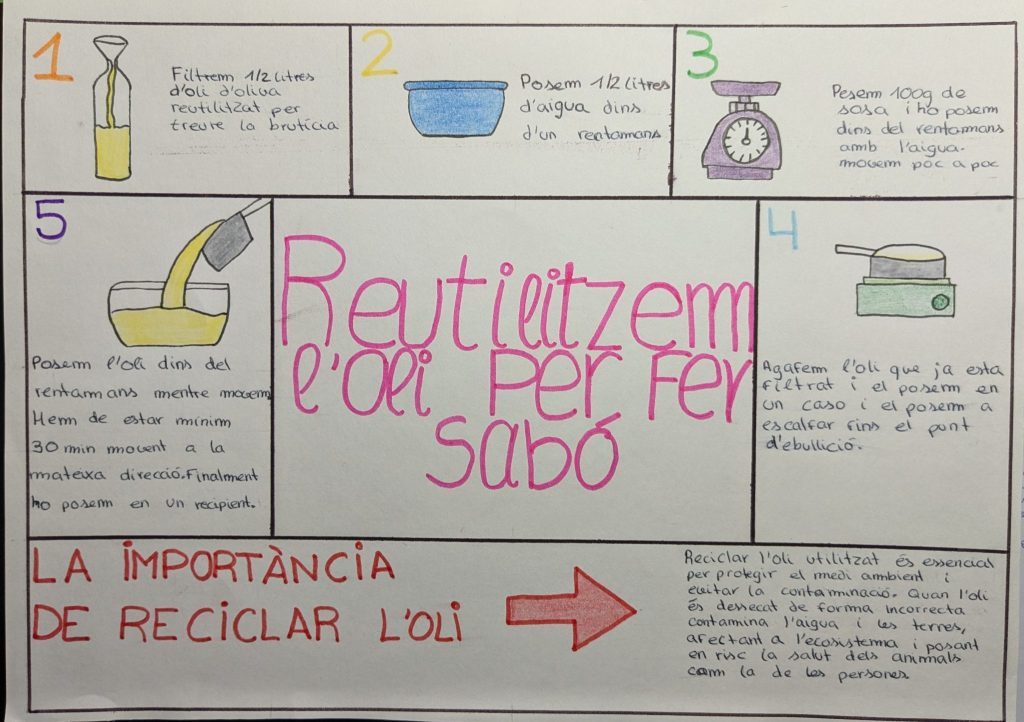 1
Filtrem 1/2 litres
d'oli d'oliva
reutilitzat per
treure la brutícia
2
Posem 1/2 litres
d'aigua dins
d'un rentamans
3
Pesem 100g de
sosa i ho posem
dins del rentamans
amb l'aigua.
movem poc a poc
Reutilitzem
l'Oli per fer
sabó
4
Agafem l'oli que ja esta
filtrat i el posem en
un caso i el posem a
escalfar fins el punt
d'ebullició.
5
Posem l'oli dins del
rentamans mentre movem
Hem de estar mínim
30 min movent a la
mateixa direcció. Finalment
ho posem en un recipient.
LA IMPORTÀNCIA
DE RECICLAR L'OLI
Reciclar l'oli utilitzat és essencial
per protegir el medi ambient i
evitar la contaminació. Quan l'oli
és dessecat de forma incorrecta
contamina l'aigua i les terres,
afectant a l'ecosistema i posant
en risc la salut dels animals
com la de les persones